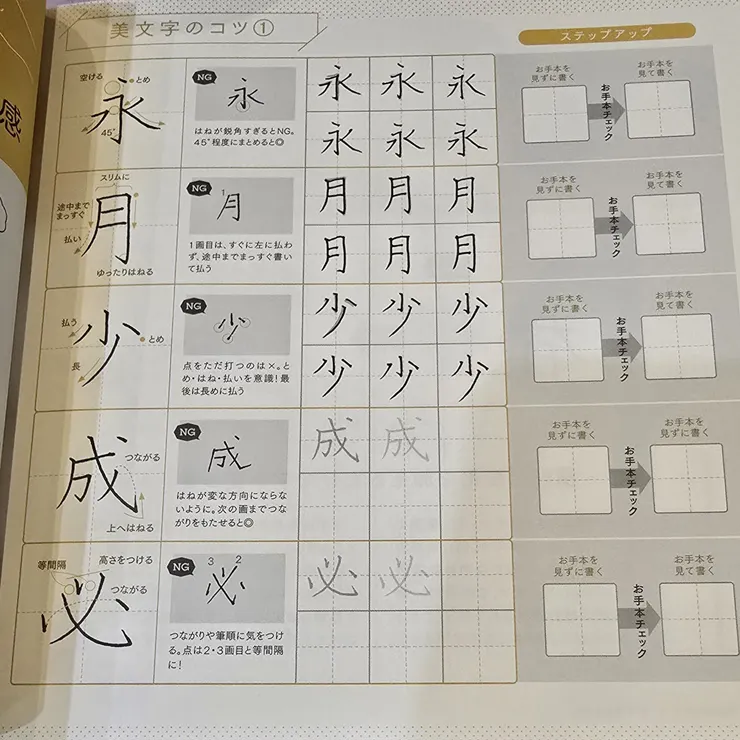 美文字のコツ①
ステップアップ
感
空ける
とめ
永
45°
NG
永
はねが鋭角すぎるとNG。
45°程度にまとめると◎
永 永 永
永 永 永
お手本を
見ずに書く
お手本チェック
お手本を
見て書く
スリムに
途中まで
まっすぐ
払い
月
ゆったりはねる
NG
1
月
1画目は、すぐに左に払わ
ず、途中までまっすぐ書い
て払う
月 月 月
月 月 月
お手本を
見ずに書く
お手本チェック
お手本を
見て書く
払う
とめ
長
少
NG
少
点をただ打つのは×。と
め・はね・払いを意識!最
後は長めに払う
少 少 少
少 少 少
お手本を
見ずに書く
お手本チェック
お手本を
見て書く
つながる
成
上へはねる
NG
成
はねが変な方向にならな
いように。次の画までつな
がりをもたせると◎
成 成
お手本を
見ずに書く
お手本チェック
お手本を
見て書く
等間隔
高さをつける
つながる
必
NG
3 2
必
つながりや筆順に気をつけ
る。点は2・3画目と等間隔
に!
必 必
お手本を
見ずに書く
お手本チェック
お手本を
見て書く